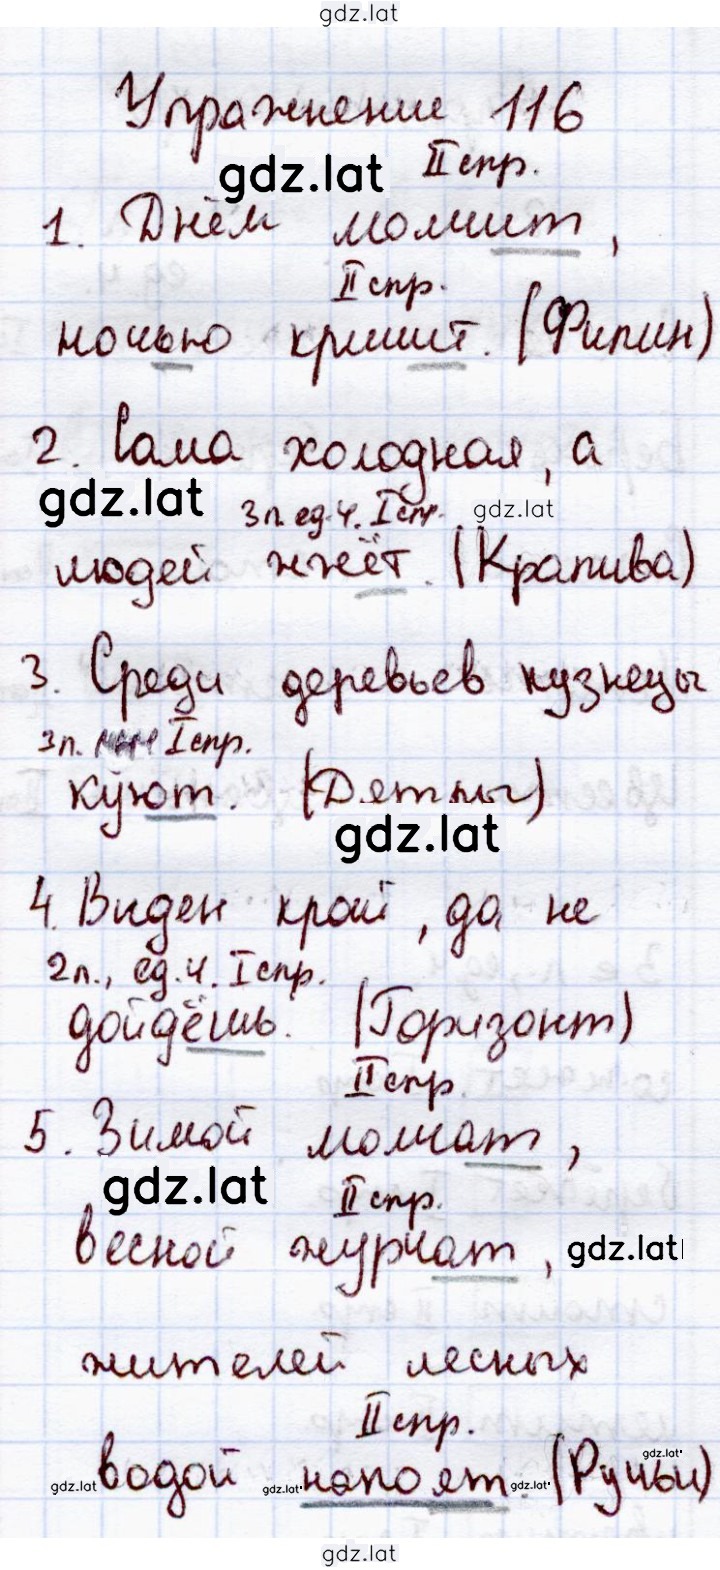 gdz.lat
Упражнение 116
gdz.lat II спр.
1. Днём молчит,
II спр.
ночью кричит. (Филин)
2. Сама холодная, а
gdz.lat 3п. ед.ч. I спр. gdz.lat
людей жжёт. (Крапива)
3. Среди деревьев кузнецы
3п. I спр.
куют. (Дятлы)
gdz.lat
4. Виден край, да не
2п., ед.ч. I спр.
дойдёшь. (Горизонт)
II спр.
5. Зимой молчат,
gdz.lat II спр.
весной журчат, gdz.lat
жителей лесных
II спр.
gdz.lat
gdz.lat водой gdz.lat напоят. gdz.lat (Ручьи)
gdz.lat